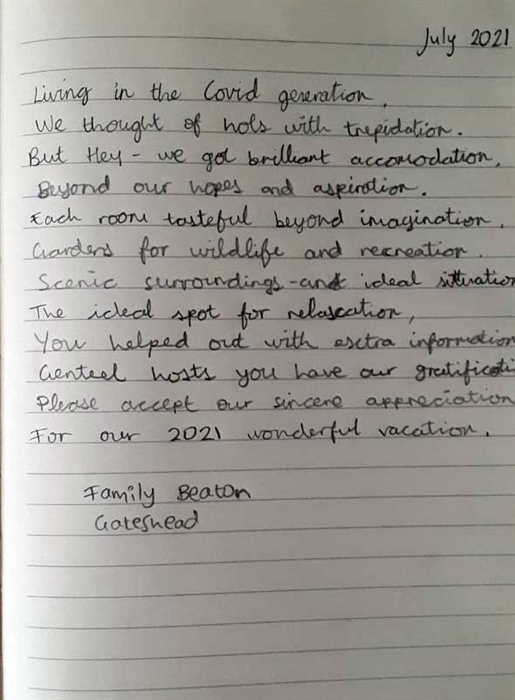 July 2021
Living in the Covid generation,
We thought of hols with trepidation.
But Hey - we got brilliant accomodation,
Beyond our hopes and aspiration.
Each room tasteful beyond imagination,
Gardens for wildlife and recreation.
Scenic surroundings - and ideal situation
The ideal spot for relaxation,
You helped out with extra information
Genteel hosts you have our gratificati
Please accept our sincere appreciation
For our 2021 wonderful vacation.
Family Beaton
Gateshead